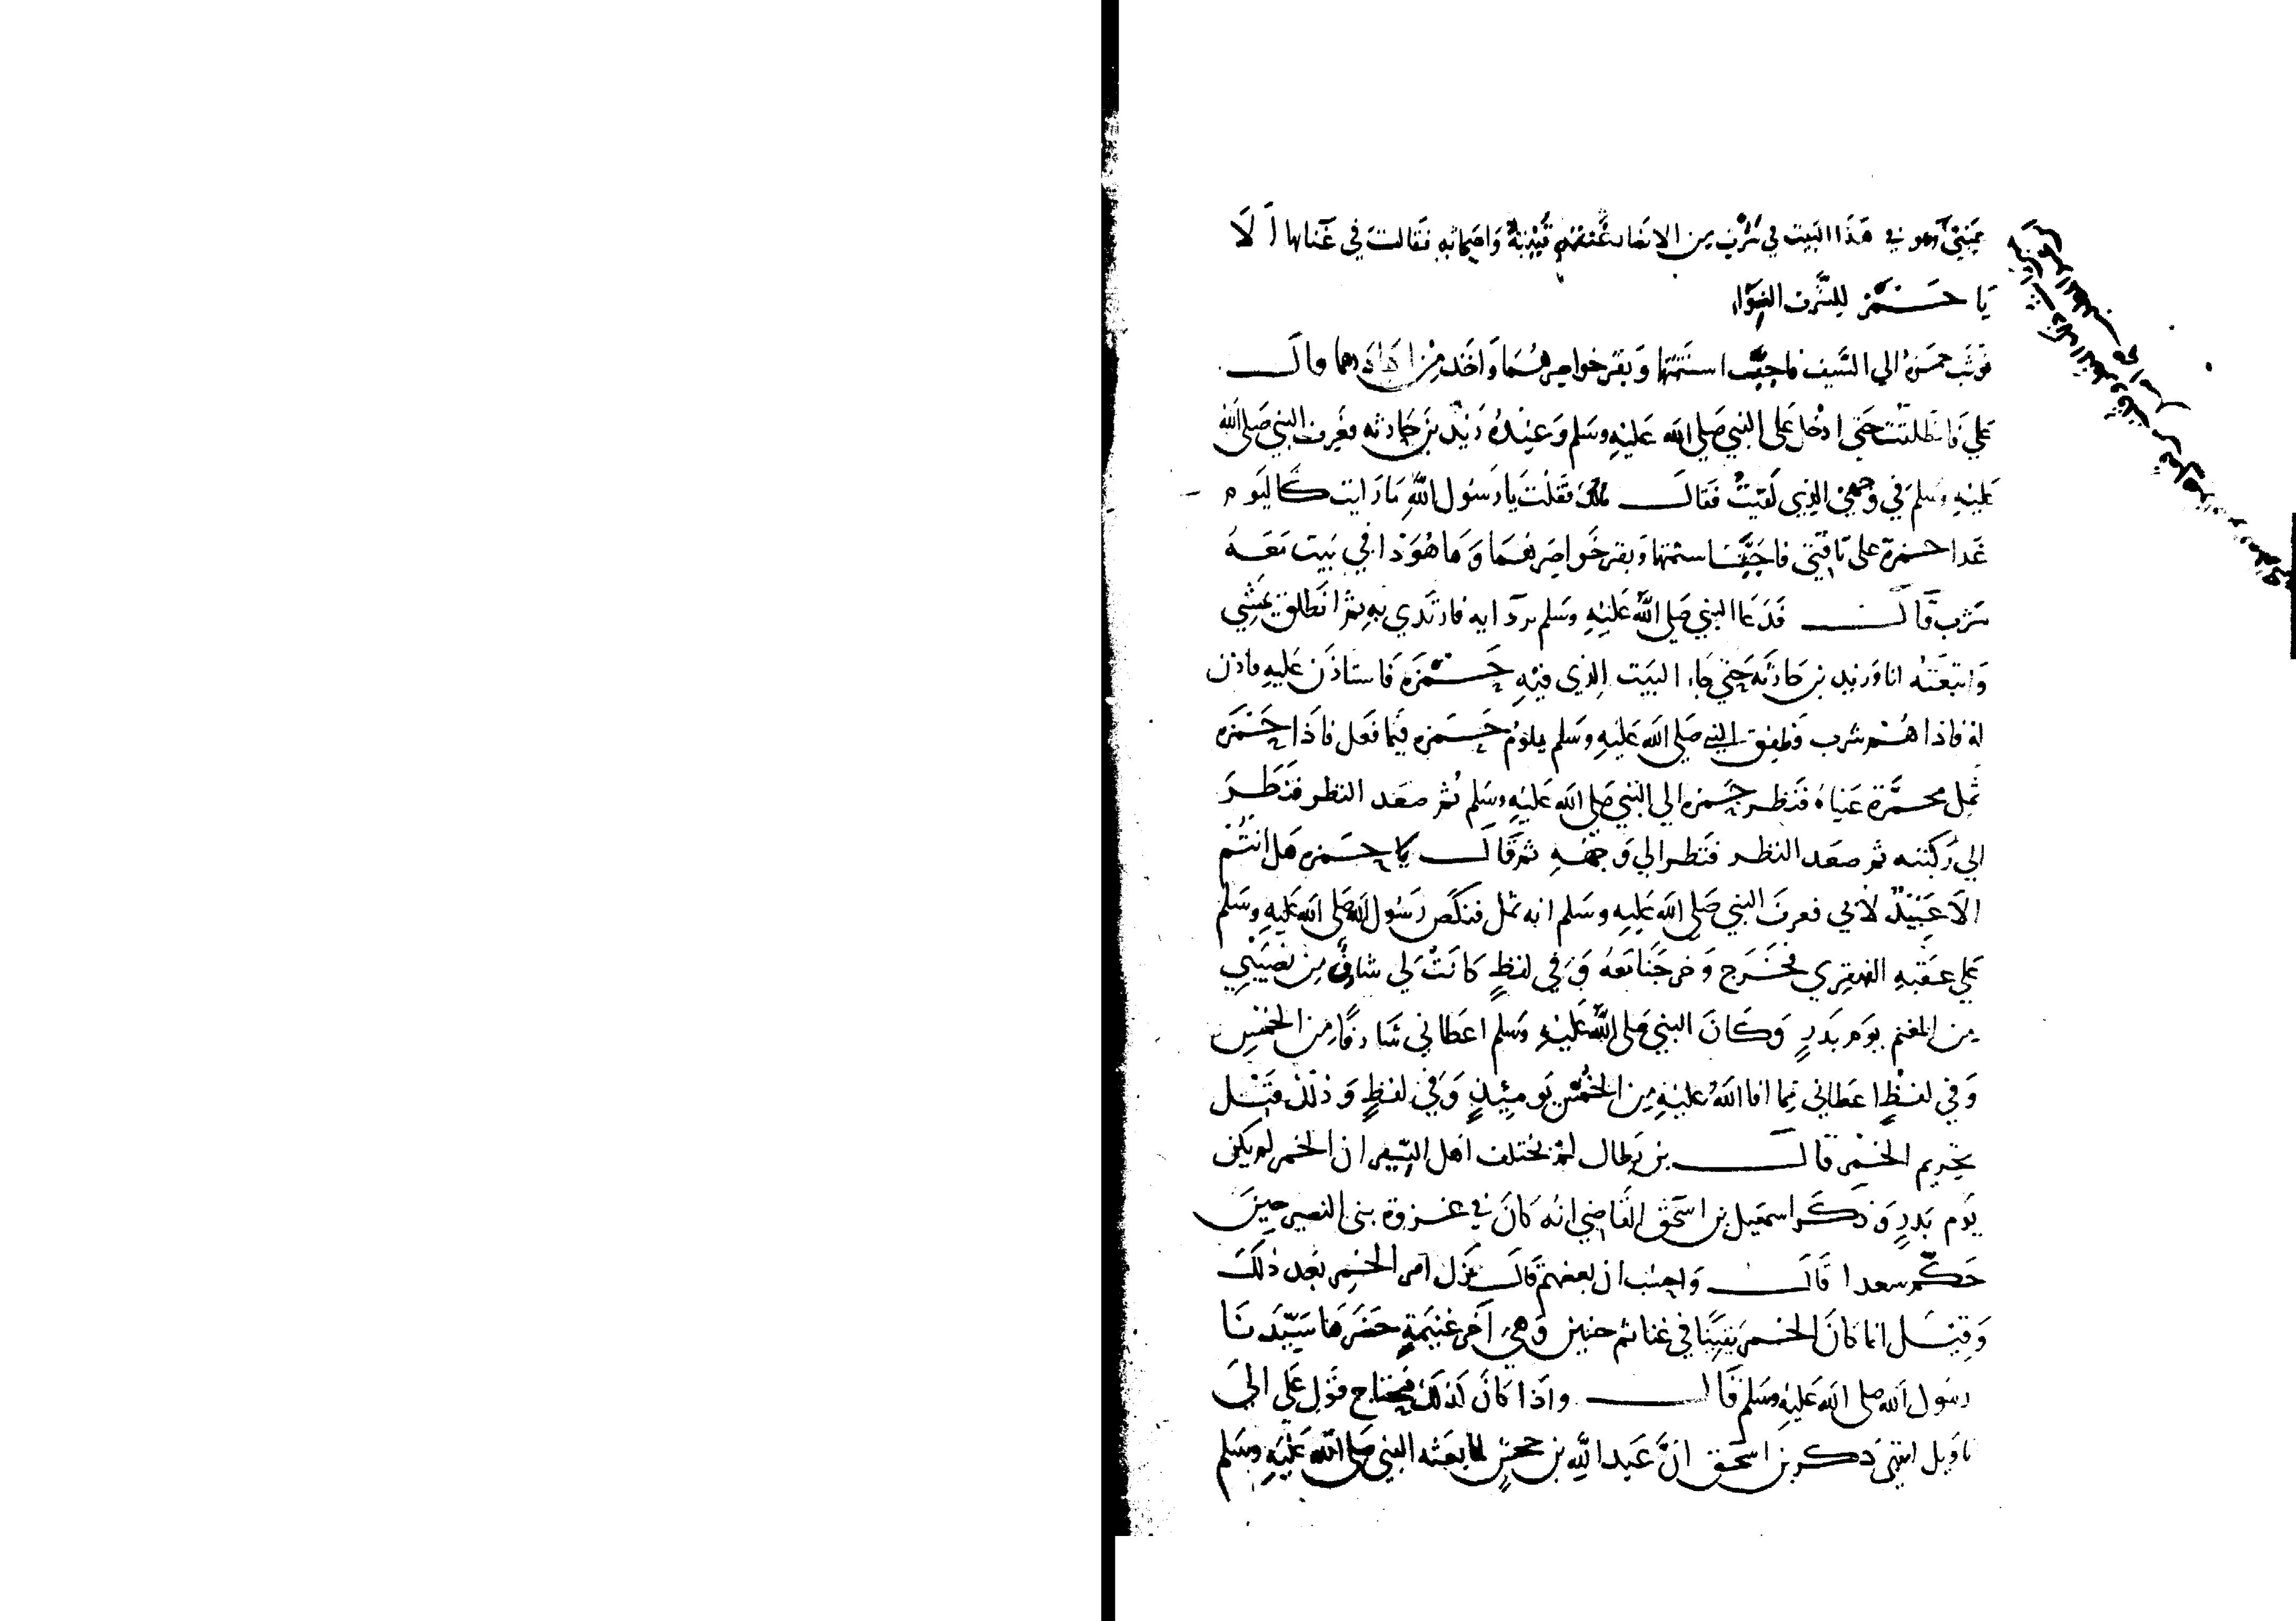 عينى وهو في هَذَا البَيت في شَرْب من الانصار عندهم قَيْنَةٌ وَاصحابه فقالت في غنائها اَلَا
يَا حَمْزَ للِشُّرف النِوَاء
فوثبَ حمزَهُ الي السَّيف فاجتَبَّ اسنمتهَا وَبقرَ خواصِرهُمَا وَاخَذ مِنْ اكبادهما قالَ
علي فَانطَلقْت حَتى ادْخل عَلى النبي صَلى الله عَليْهِ وسَلم وَعِنْدهُ زَيْد بنْ حَارثه فعَرف النبي صَلى الله
عَليْهِ وَسلمَ في وَجهىَ الذِي لَقيتُ فَقالَ مالكَ فقُلت يَا رَسُول اللهِ مَا رَايت كَاليَوم
عَدا حمزة على نَاقتىّ فاجتَبَّ اسنمتهما وَبقر خَواصِرَهُمَا وَهَا هُوَ ذا في بَيت مَعَهُ
شَرْب قَالَ فَدَعَا النبي صَلى اللهُ عَليْهِ وسَلم بردآيه فارتَدي بِهِ ثمْ انطَلق يمَشِي
وَاتبَعتهُ انا وَزيد بن حَارثَه حَتى جَاء البَيت الِذي فيْهِ حَمْزَه فَاستاذَن عَليهِ فاذن
لهُ فاذا هُمْ شرب فَطفِق النبي صَلى الله عَليْهِ وَسَلم يلوُم حَمزه فيَما فعَل فاذَا حَمْزَه
ثَمِل محمَّرة عَيناهُ فَنظر حَمزه الي النبي صَلى الله عَليْهِ وسَلم ثمْ صعَد النظر فَنَظَرَ
الي رُكبته ثم صعَد النظر فنَظر الي وَجههِ ثم قَالَ يا حمزه هَل انتُمْ
الَا عَبيْدٌ لأبي فعرفَ النبي صَلى الله عَليهِ وسَلم انه ثمل فنكَصَ رَسُول الله صَلى الله عَليهِ وسَلم
عَلي عقبهِ القهقري فخَرَج وَخرجنَا مَعَهُ وَفي لفظٍ كَانتْ لي شارِفٌ مِن نَصيْبِي
مِن المغنم يوَم بَدرٍ وَكَانَ النبي صَلى اللهُ عَليْهِ وسَلم اعطَاني شَارِفًا مِن الخمُسِ
وَفي لفظٍ اعطَاني مِمَا افا اللهُ عَليْهِ مِنَ الخُمُس يَومئِيذٍ وَفي لفظٍ وَذلك قبْل
تحِريم الخَمْر قالَ بن بَطال لمْ يختلف اهَل السِّيَر ان الخمر لم يكن
يَوم بَدرٍ وَذكَر اسمعيل بن اسَحق القَاضي انهُ كانَ في غزوة بنى النضير حِينَ
حَكّم سعدا قَالَ وَاحسب ان بعضهم قَال نَزل اَمر الخَمِر بَعد ذلكَ
وَقيْل انما كانَ الخمر يَقيِنًا في غنائم حنين وَهي اَخَر غنيَمةٍ حضَرَها سَيّدَنَا
رسَول الله صلى الله عَليهِ وسَلم قَالَ وَاذا كَانَ كذلَكَ فيحتاج قَول عَلي الي
تاوَيل انتهىَ ذكر بن اسحَق انّ عَبد الله بن جحشٍ لما بعَثه النبي صَلى الله عَليْهِ وسَلم